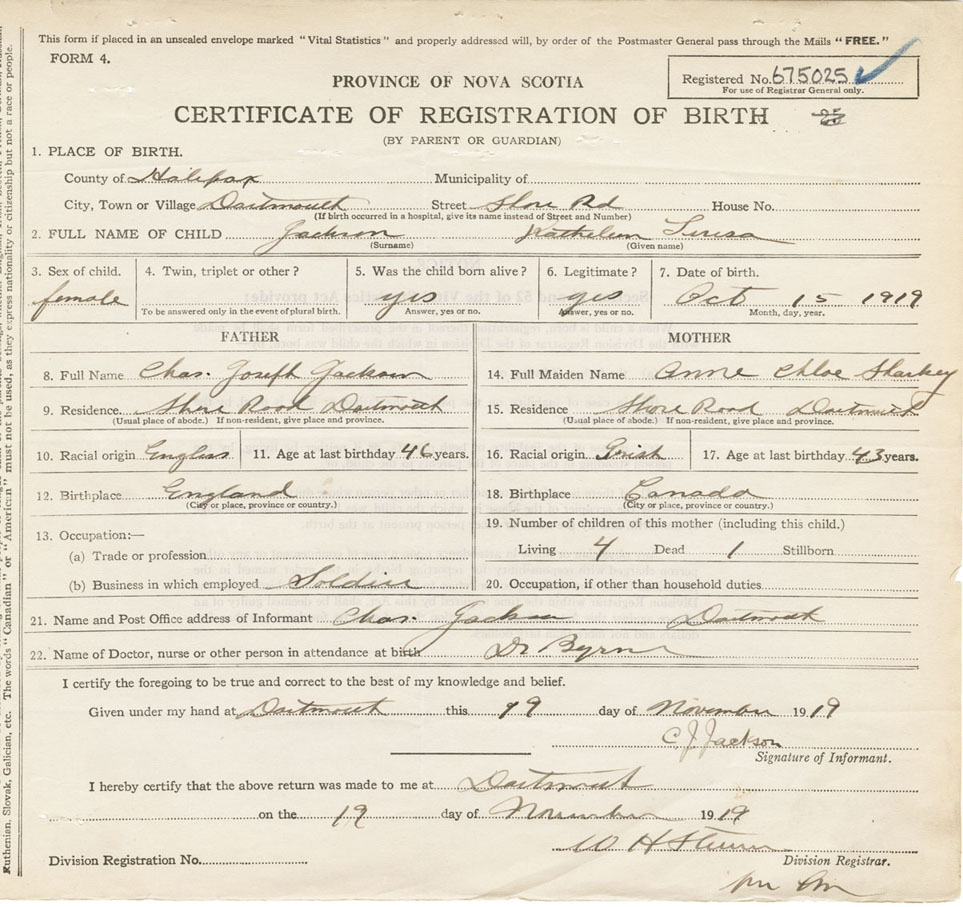 This form if placed in an unsealed envelope marked "Vital Statistics" and properly addressed will, by order of the Postmaster General pass through the Mails "FREE."
FORM 4.
Registered No. 675025
For use of Registrar General only.
PROVINCE OF NOVA SCOTIA
CERTIFICATE OF REGISTRATION OF BIRTH
(BY PARENT OR GUARDIAN)
1. PLACE OF BIRTH.
County of Halifax Municipality of
City, Town or Village Dartmouth Street Shore Rd House No.
(If birth occurred in a hospital, give its name instead of Street and Number)
2. FULL NAME OF CHILD Jackson Kathleen Teresa
(Surname) (Given name)
3. Sex of child. 4. Twin, triplet or other? 5. Was the child born alive? 6. Legitimate? 7. Date of birth.
female yes yes Oct 15 1919
To be answered only in the event of plural birth. Answer, yes or no. Answer, yes or no. Month, day, year.
FATHER MOTHER
8. Full Name Chas. Joseph Jackson 14. Full Maiden Name Anne Chloe Sharkey
9. Residence. Shore Road Dartmouth 15. Residence Shore Road Dartmouth
(Usual place of abode.) If non-resident, give place and province. (Usual place of abode.) If non-resident, give place and province.
10. Racial origin English 11. Age at last birthday 46 years. 16. Racial origin Irish 17. Age at last birthday 43 years.
12. Birthplace England 18. Birthplace Canada
(City or place, province or country.) (City or place, province or country.)
19. Number of children of this mother (including this child.)
13. Occupation:—
(a) Trade or profession Living 4 Dead 1 Stillborn
(b) Business in which employed Soldier 20. Occupation, if other than household duties.
21. Name and Post Office address of Informant Chas. Jackson Dartmouth
22. Name of Doctor, nurse or other person in attendance at birth Dr Byrne
I certify the foregoing to be true and correct to the best of my knowledge and belief.
Given under my hand at Dartmouth this 19 day of November 1919
C. J. Jackson
Signature of Informant.
I hereby certify that the above return was made to me at Dartmouth
on the 19 day of November 1919
W H
Division Registration No. Division Registrar.
Ruthenian, Slovak, Galician, etc. The words "Canadian" or "American" must not be used, as they express nationality or citizenship but not a race or people.